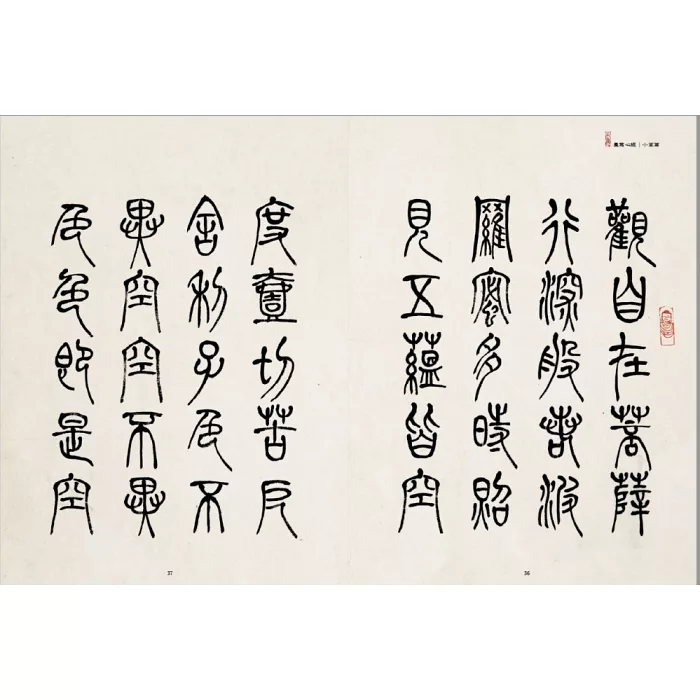 心經｜小篆篇
觀自在菩薩
行深般若波
羅蜜多時照
見五蘊皆空
36
度壹切苦厄
舍利子色不
異空空不異
色色即是空
37